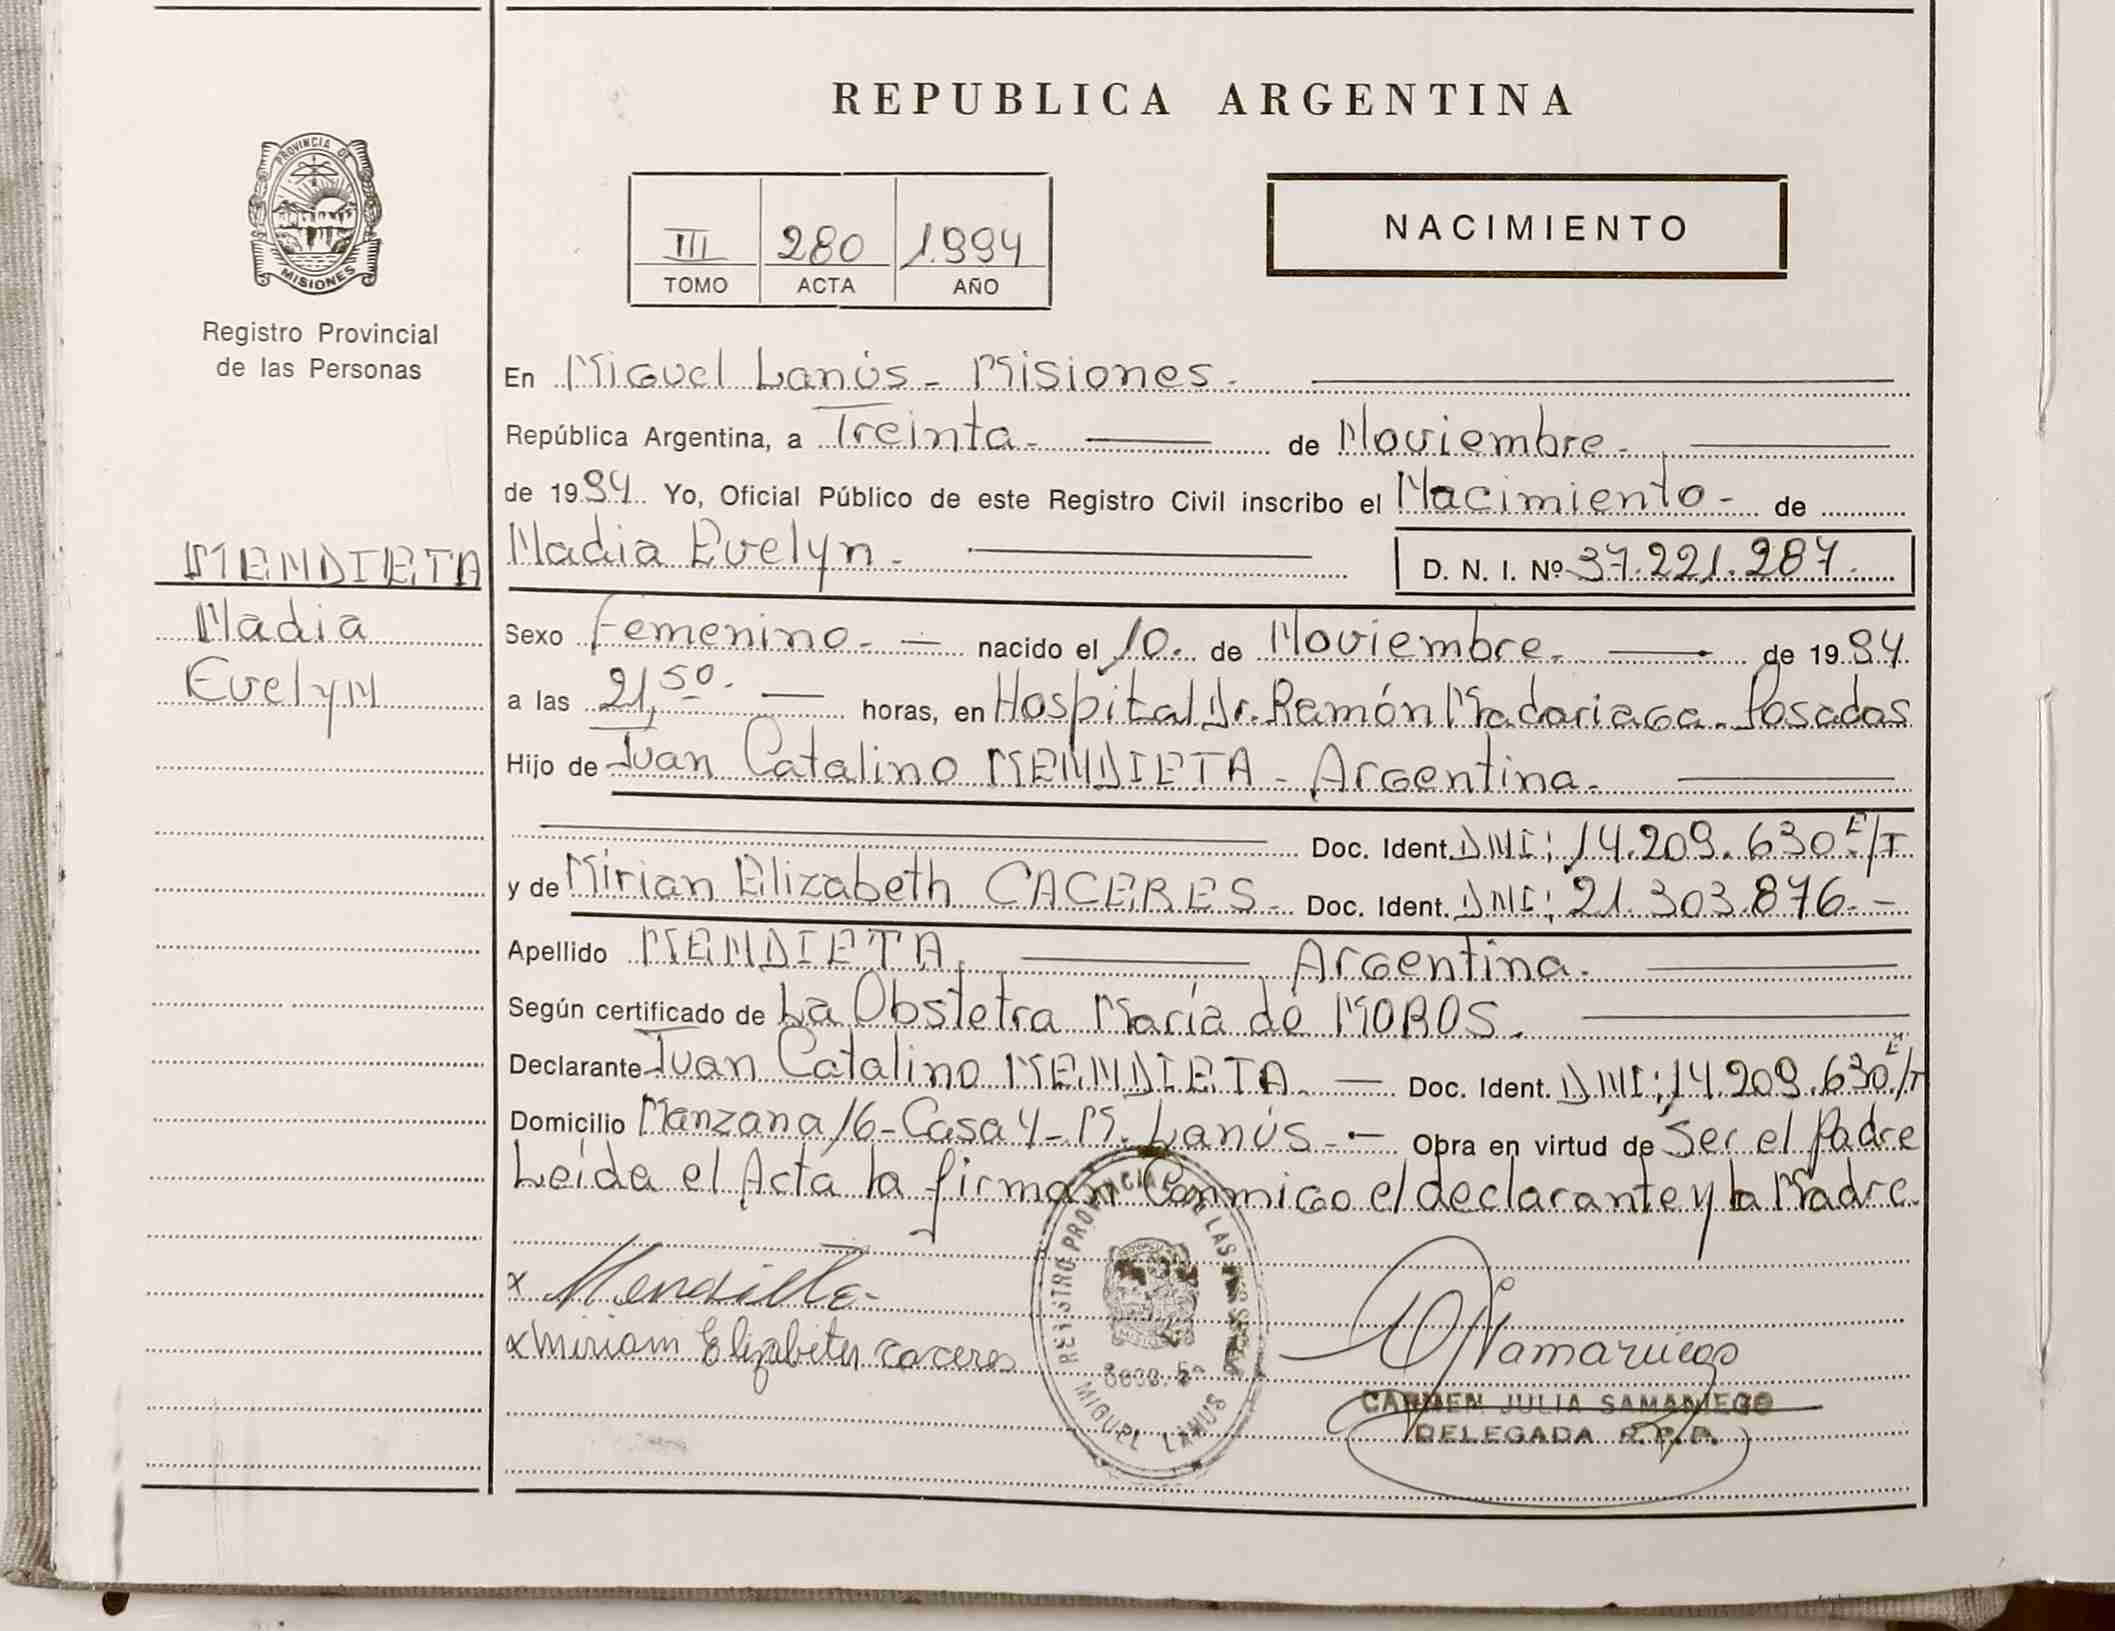 REPUBLICA ARGENTINA
PROVINCIA DE
MISIONES
Registro Provincial
de las Personas
III 280 1.994
TOMO ACTA AÑO
NACIMIENTO
En Miguel Lanús - Misiones.
República Argentina, a Treinta. de Noviembre.
de 1994. Yo, Oficial Público de este Registro Civil inscribo el Nacimiento - de
MENDIETA
Nadia
Evelyn
Nadia Evelyn. D. N. I. Nº 37.221.287.
Sexo Femenino. nacido el 10. de Noviembre. de 1994.
a las 21,50. horas, en Hospital Dr. Ramón Madariaga. Posadas
Hijo de Juan Catalino MENDIETA - Argentina.
Doc. Ident. DNI: 14.209.630 E/T
y de Mirian Elizabeth CACERES. Doc. Ident. DNI: 21.303.876.-
Apellido MENDIETA. Argentina.
Según certificado de La Obstetra María de MOROS.
Declarante Juan Catalino MENDIETA. Doc. Ident. DNI: 14.209.630. E/T
Domicilio Manzana 16 - Casa 4 - M. Lanús. - Obra en virtud de Ser el Padre
Leída el Acta la firman Conmigo el declarante y la Madre.
x Mendieta
x Miriam Elizabeter caceres
REGISTRO PROVINCIAL DE LAS PERSONAS
MIGUEL LANUS
CARMEN JULIA SAMANIEGO
DELEGADA R.P.P.